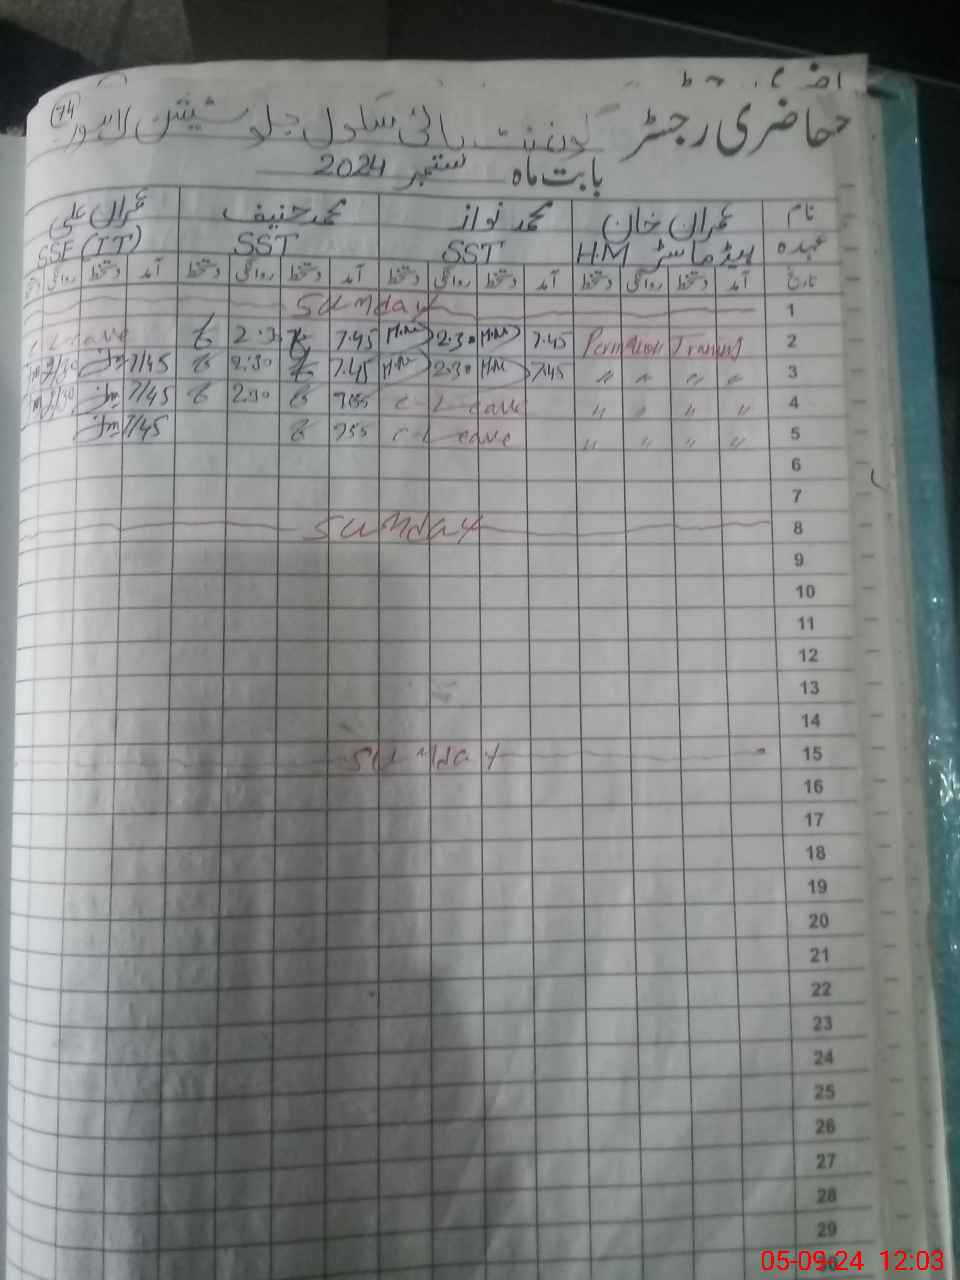 حاضری رجسٹر گورنمنٹ ہائی سکول جلو سٹیشن لاہور 74
بابت ماہ ستمبر 2024
نام عمران خان محمد نواز محمد حنیف عمران علی
عہدہ ہیڈ ماسٹر H.M SST SST SSE (IT)
تاریخ آمد دستخط روانگی دستخط آمد دستخط روانگی دستخط آمد دستخط روانگی دستخط آمد دستخط روانگی
1 Sunday
2 Permotion Training 7.45 H.M 2.30 H.M 7.45 2.30 C Leave
3 〃 〃 〃 〃 7.45 H.M 2.30 H.M 7.45 2.30 7/45
4 〃 〃 〃 〃 C-Leave 7.55 2.30 7/45
5 〃 〃 〃 〃 C-Leave 7.55 7/45
6
7
8 Sunday
9
10
11
12
13
14
15 Sunday
16
17
18
19
20
21
22
23
24
25
26
27
28
29
30
05-09-24 12:03